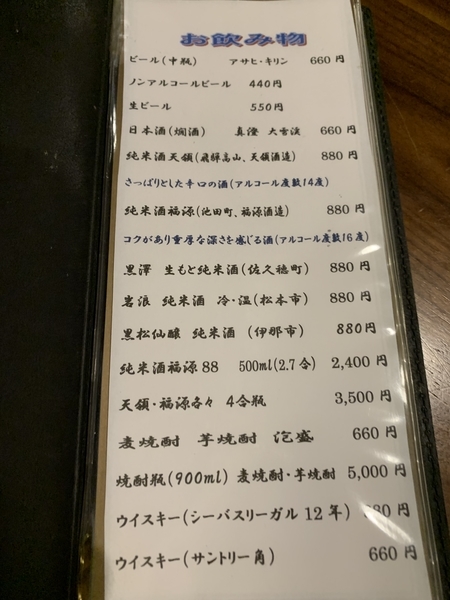 お飲み物
ビール(中瓶) アサヒ・キリン 660円
ノンアルコールビール 440円
生ビール 550円
日本酒(燗酒) 真澄 大雪渓 660円
純米酒天領(飛騨高山、天領酒造) 880円
さっぱりとした辛口の酒(アルコール度数14度)
純米酒福源(池田町、福源酒造) 880円
コクがあり重厚な深さを感じる酒(アルコール度数16度)
黒澤 生もと純米酒(佐久穂町) 880円
岩波 純米酒 冷・温(松本市) 880円
黒松仙醸 純米酒 (伊那市) 880円
純米酒福源88 500ml(2.7合) 2,400円
天領・福源各々 4合瓶 3,500円
麦焼酎 芋焼酎 泡盛 660円
焼酎瓶(900ml) 麦焼酎・芋焼酎 5,000円
ウイスキー(シーバスリーガル 12年) 80円
ウイスキー(サントリー角) 660円